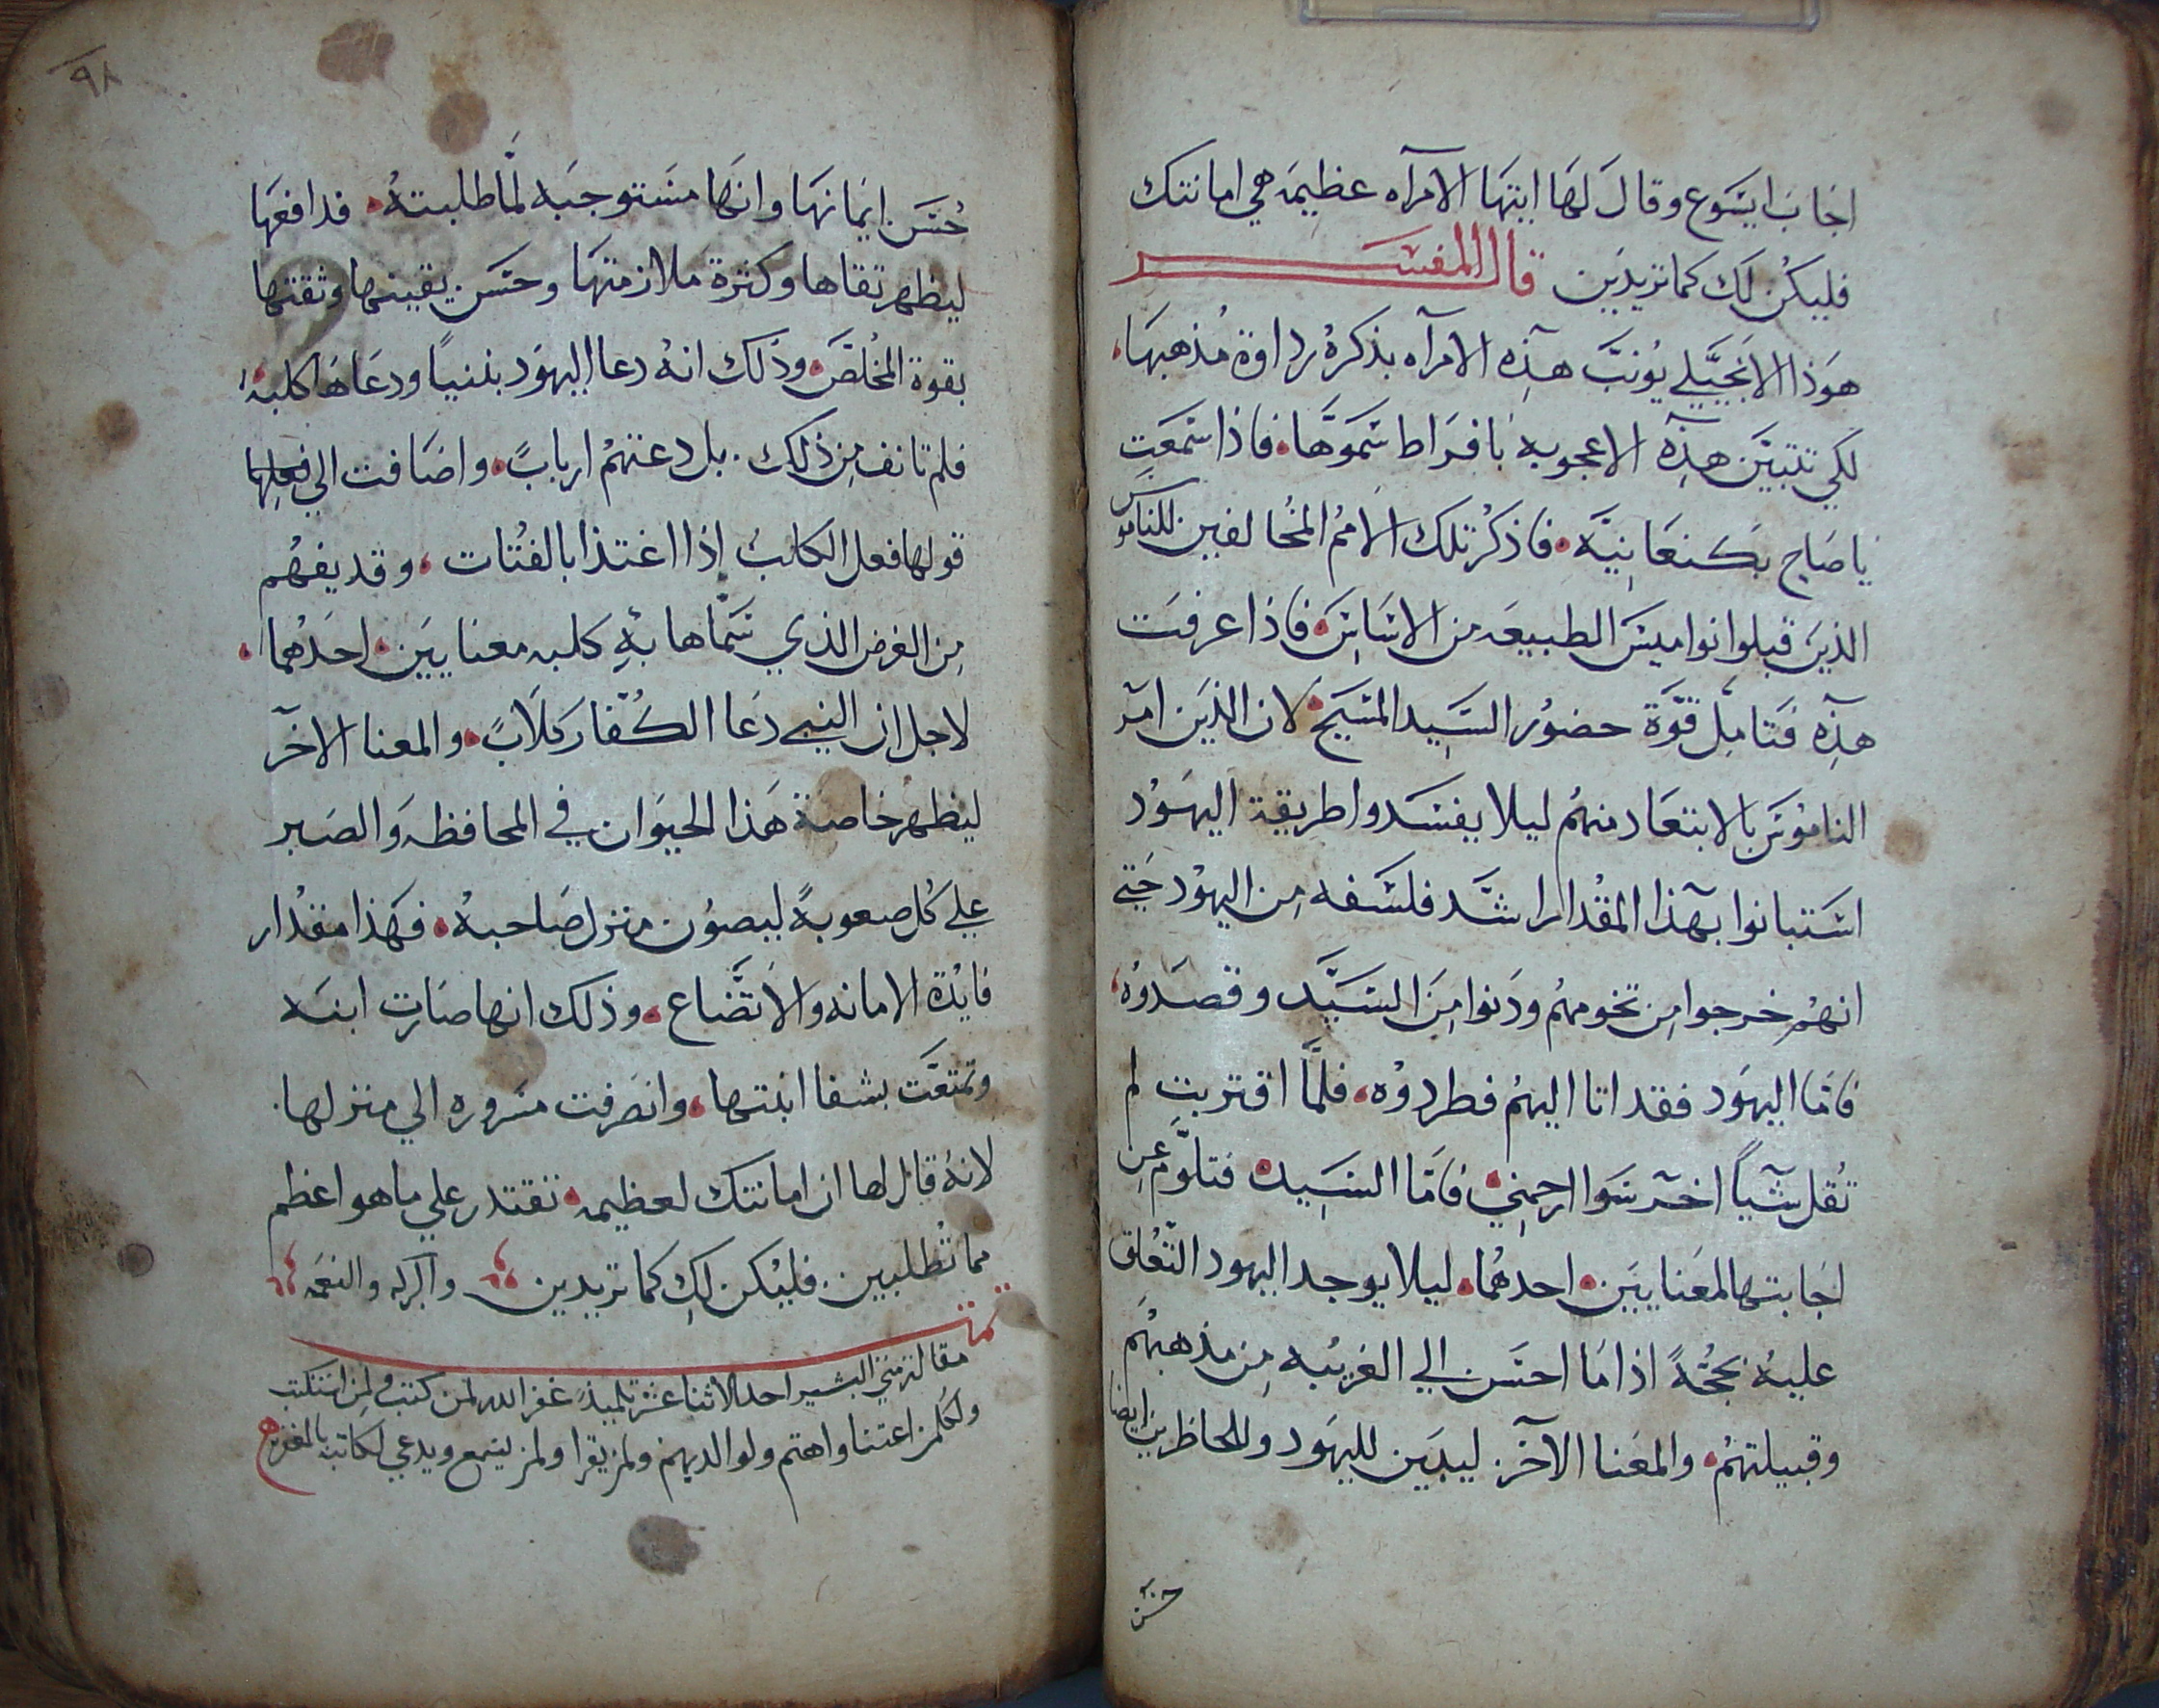 اجاب ايسوع وقال لها ايتها الامراه عظيمه هي امانتك
فليكن لك كما تريدين قال المفسر
هوذا الانجيلي يونب هذه الامراه بذكره رداوة مذهبها
لكي تتبين هذه الاعجوبه بافراط سموها فاذا سمعت
يا صاح بكنعانية فاذكر تلك الامم المخالفين للناموس
الذين قبلوا نواميس الطبيعه من الاساس فاذا عرفت
هذه فتامل قوة حضور السيد المسيح لان الذين امر
الناموس بالابتعاد منهم ليلا يفسدوا طريقة اليهود
استبانوا بهذا المقدار اشد فلسفه من اليهود حتي
انهم خرجوا من تخومهم ودنوا من السيد وقصدوه
فاما اليهود فقد اتا اليهم فطردوه فلما اقتربت لم
تقل شياً اخر سوا ارحمني فاما السيد فتلوم عن
اجابتها لمعنايين احدهما ليلا يوجد اليهود التعلق
عليه بحجة اذا ما احسن الي الغريبه من مذهبهم
وقبيلتهم والمعنا الاخر ليبين لليهود وللحاظرين ايضا
حسن
٩٨
حسن ايمانها وانها مستوجبه لما طلبته فدافعها
ليظهر تقاها وكثرة ملازمتها وحسن يقينها وثقتها
بقوة المخلص وذلك انه دعا اليهود بنيناً ودعاها كلبه
فلم تانف من ذلك بل دعتهم ارباباً واضافت الي فعلها
قولها فعل الكلاب اذا اغتذا بالفتات وقد يفهم
من الغرض الذي سماها به كلبه معنايين احدهما
لاجل ان النبي دعا الكفار كلاباً والمعنا الاخر
ليظهر خاصة هذا الحيوان في المحافظه والصبر
علي كل صعوبة ليصون منزل صاحبه فهذا مقدار
فايدة الامانه والاتضاع وذلك انها صارت ابنه
وتمتعت بشفا ابنتها وانصرفت مسروره الي منزلها
لانه قال لها ان امانتك لعظيمه تقتدر علي ما هو اعظم
مما تطلبين فليكن لك كما تريدين والبركه والنعمه
تمت
مقالة متي البشير احد الاثنا عشر تلميذ غفر الله لمن كتب ولمن استكتب
ولكلمن اعتنا واهتم ولوالديهم ولمن يقرا ولمن يسمع ويدعي لكاتبه بالمغفره